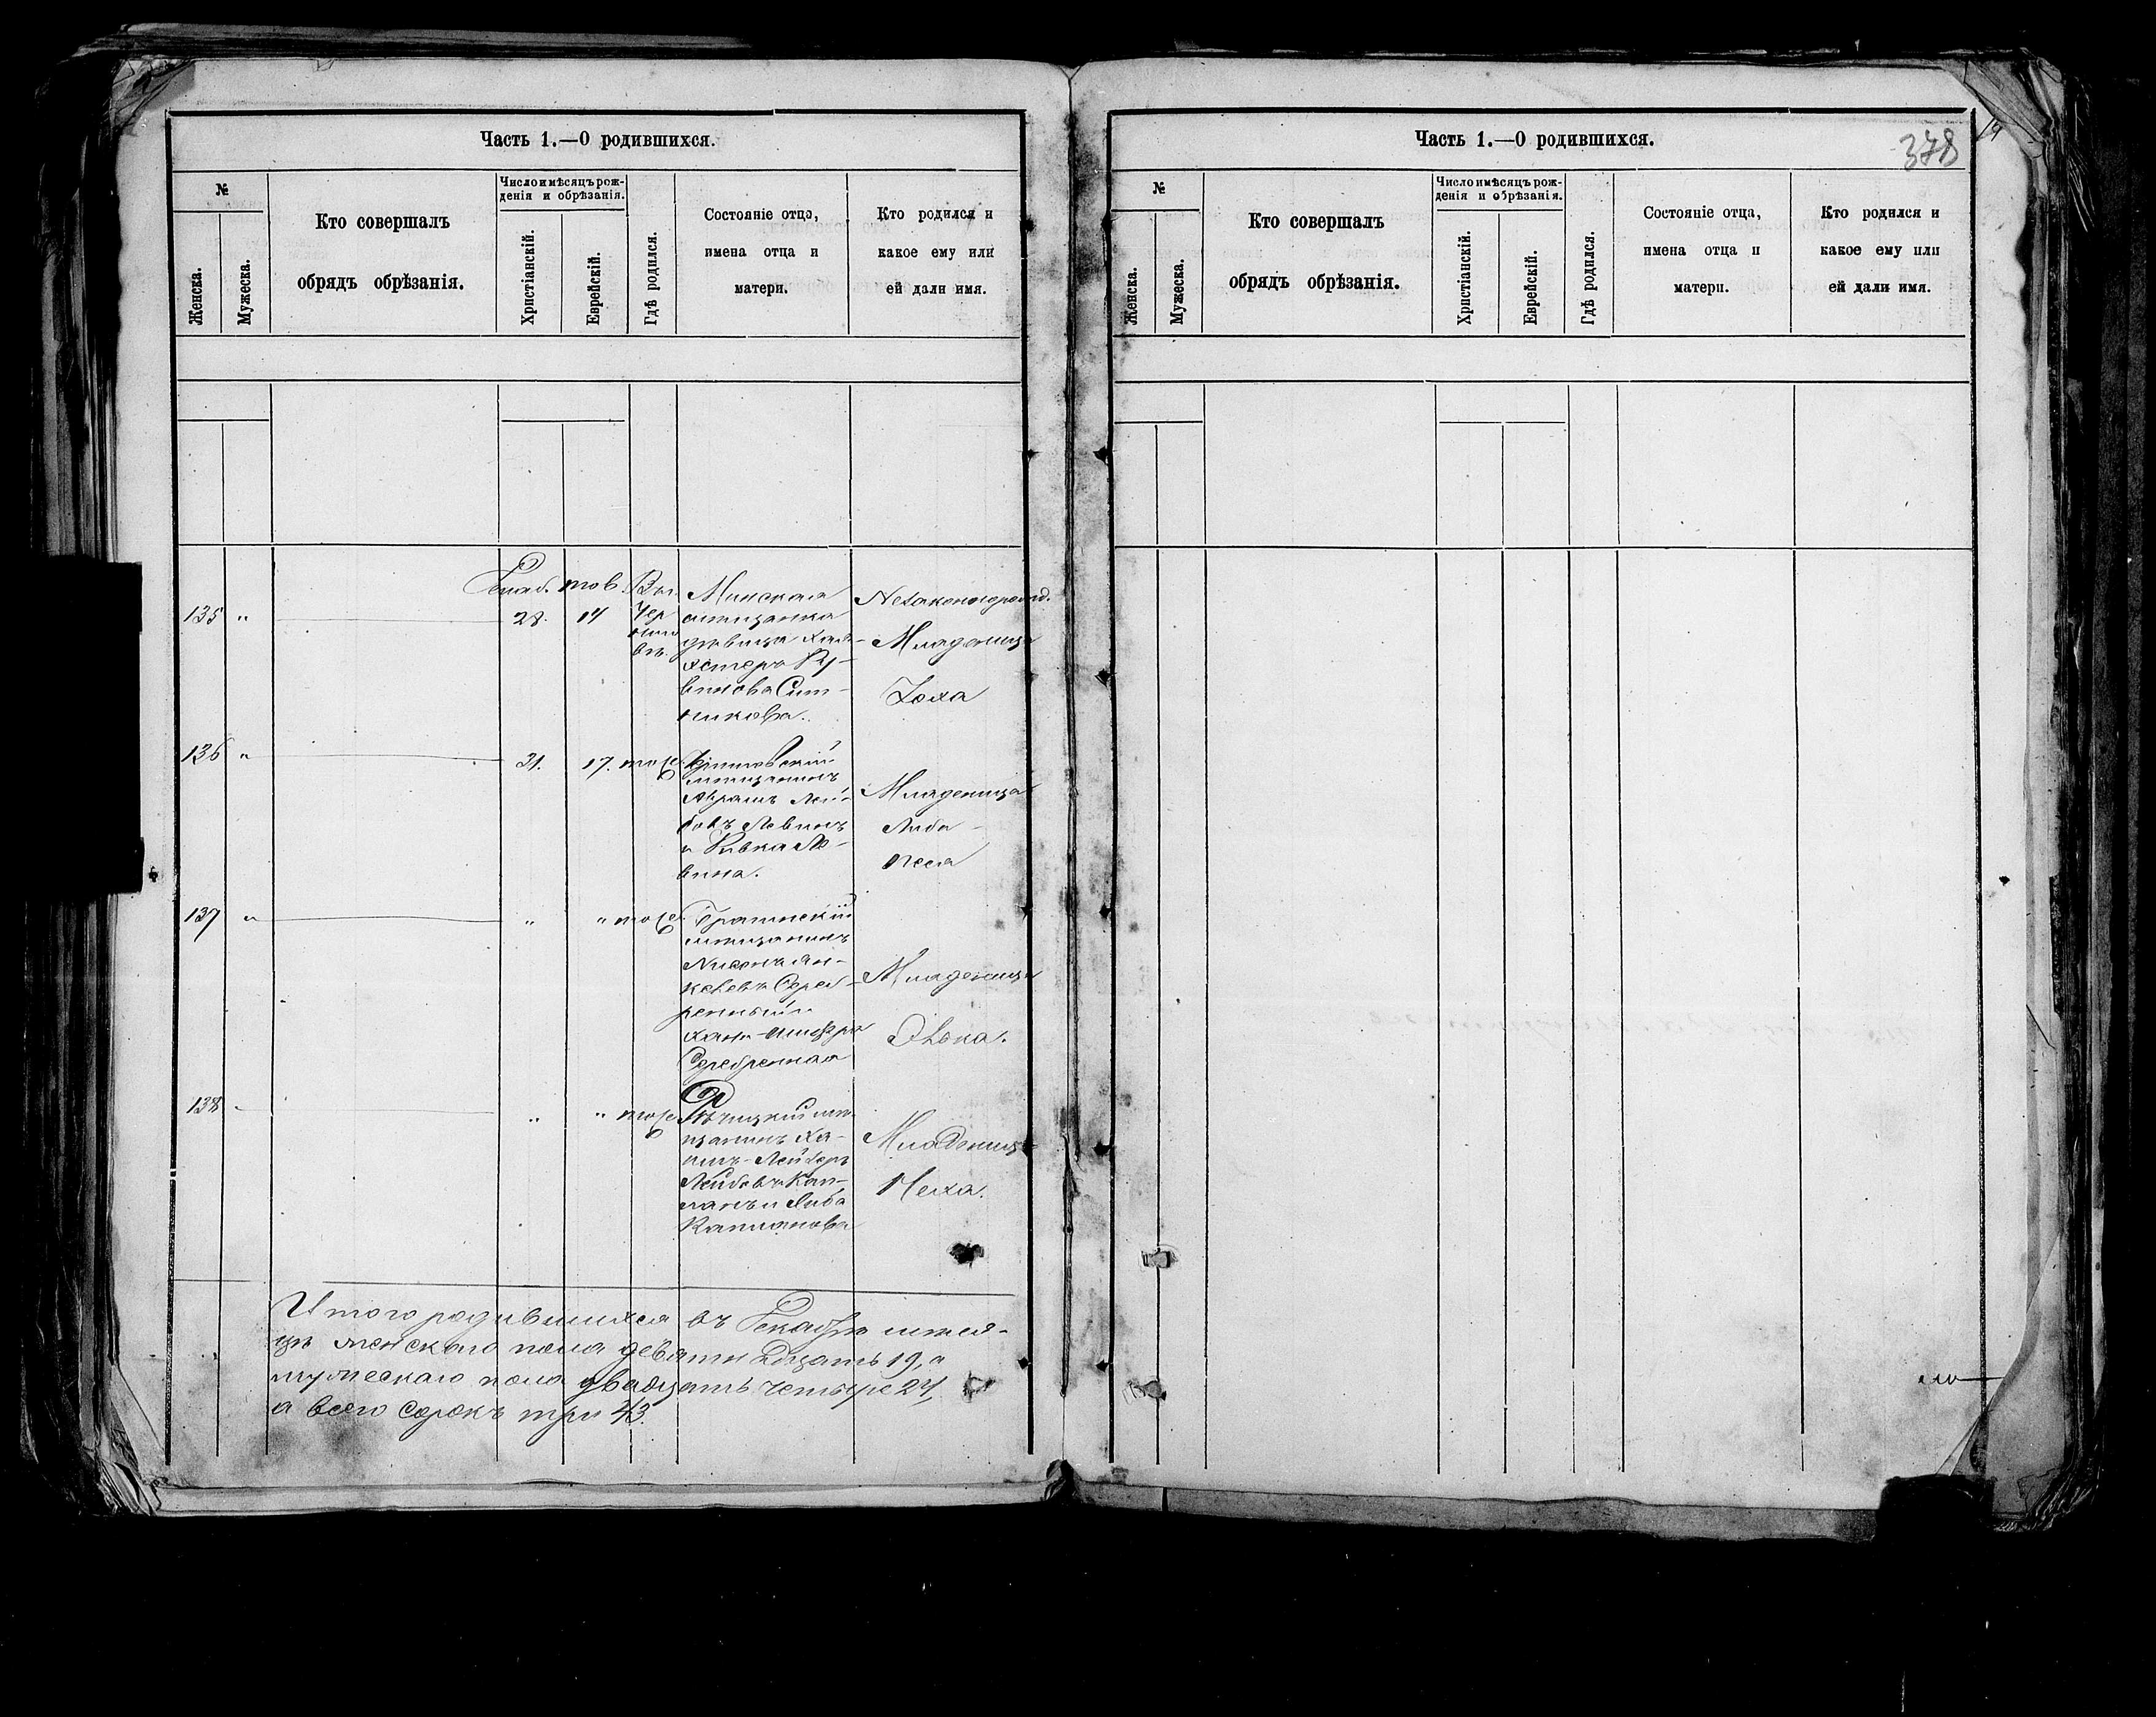 Часть 1.—О родившихся.
№
Женска.
Мужеска.
Кто совершалъ
обрядъ обрѣзанія.
Число и мѣсяцъ рож-
денія и обрѣзанія.
Христіанскій.
Еврейскій.
Гдѣ родился.
Состояніе отца,
имена отца и
матери.
Кто родился и
какое ему или
ей дали имя.
135
"
Декаб.
28.
тов.
14
Въ
Чер
ниго
вѣ.
Минская
мѣщанка
дѣвица Хая-
Эстера Ру-
винова Сит-
никова.
Незаконнорожд.
Младеница
Доха
136
"
31.
17.
тоже
мѣщанинъ
Абрамъ Лей-
бовъ Левинъ
и Ривка Ле-
вина.
Младеница
Либа-
Песя
137
"
"
"
тоже
мѣщанинъ
Нисонъ Ян-
келевъ Сереб-
ренный и
Хана-Шифра
Серебренная
Младеница
138
"
"
"
тоже
Рѣчицкій мѣ-
щанинъ Ха-
имъ-Лейзеръ
Лейбовъ Кап-
ланъ и Либа
Капланова
Младеница
Неха.
Итого родившихся въ Декабрѣ мѣся-
цѣ женскаго пола девятнадцать 19, а
мужескаго пола двадцать четыре 24,
а всего сорокъ три 43.
Часть 1.—О родившихся.
378
19
№
Женска.
Мужеска.
Кто совершалъ
обрядъ обрѣзанія.
Число и мѣсяцъ рож-
денія и обрѣзанія.
Христіанскій.
Еврейскій.
Гдѣ родился.
Состояніе отца,
имена отца и
матери.
Кто родился и
какое ему или
ей дали имя.